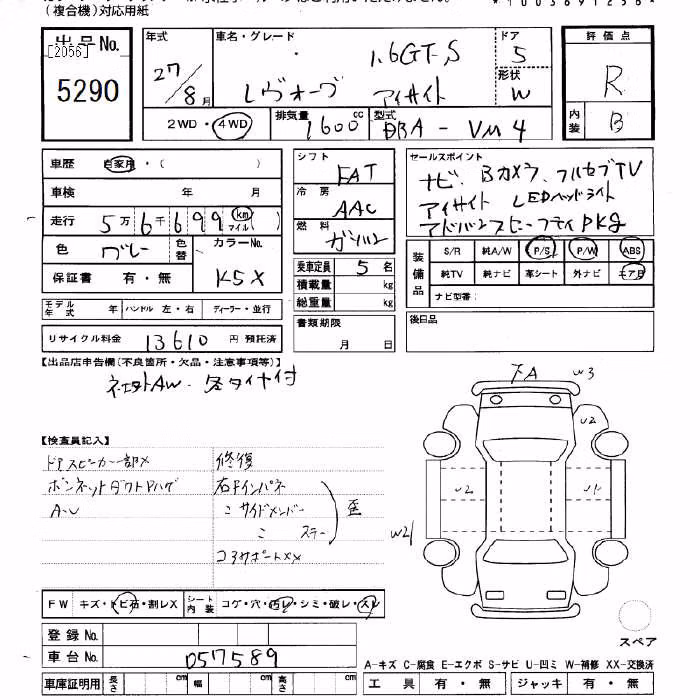 (複合機)対応用紙
*1003691256*
出品No.
[2056]
5290
年式 27/8月
車名・グレード 1.6GT.S
レヴォーグ アイサイト
ドア 5
形状 W
2WD・4WD
排気量 1600cc
型式 DBA - VM4
評価点
R
内装 B
車歴 自家用・( )
車検 年 月
走行 5万6千699 km マイル( )
色 グレー
色替
カラーNo. K5X
保証書 有・無
モデル年式 年
ハンドル 左・右
ディーラー・並行
リサイクル料金 13610 円 預託済
シフト FAT
冷房 AAC
燃料 ガソリン
乗車定員 5名
積載量 kg
総重量 kg
書類期限
月 日
セールスポイント
ナビ、Bカメラ、フルセブTV
アイサイト LEDヘッドライト
アドバンスセーフティPKg
装備品
S/R 純A/W P/S P/W ABS
純TV 純ナビ 革シート 外ナビ エアB
ナビ型番:
後日品
【出品店申告欄(不良箇所・欠品・注意事項等)】
社外AW・冬タイヤ付
【検査員記入】
ドアスピーカー部X
ボンネットダクトPハゲ
A-U
修復
右Fインパネ
〃 サイドメンバー
〃 ステー
歪
コアサポートXX
下A
W3
U2
U2
U1
W2
FW キズ・トビ石・割レX
シート内装 コゲ・穴・汚レ・シミ・破レ・スレ
登録No.
車台No. 057589
車庫証明用 長さ cm 幅 cm 高さ cm
スペア
A-キズ C-腐食 E-エクボ S-サビ U-凹ミ W-補修 XX-交換済
工具 有・無
ジャッキ 有・無